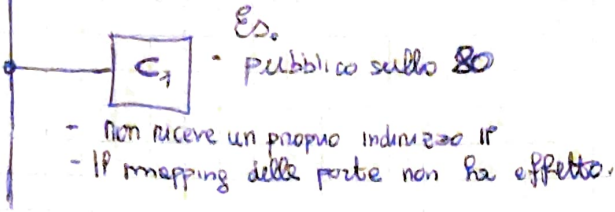 Es.
C1 • pubblico sullo 80
- non riceve un proprio indirizzo IP
- IP mapping delle porte non ha effetto.